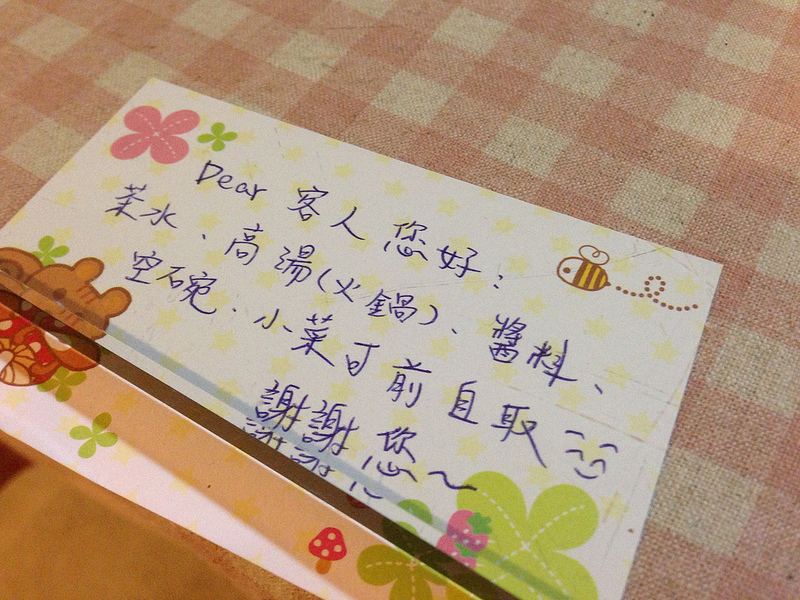 Dear 客人您好：
茶水、高湯(火鍋)、醬料、
空碗、小菜可前自取
謝謝您～